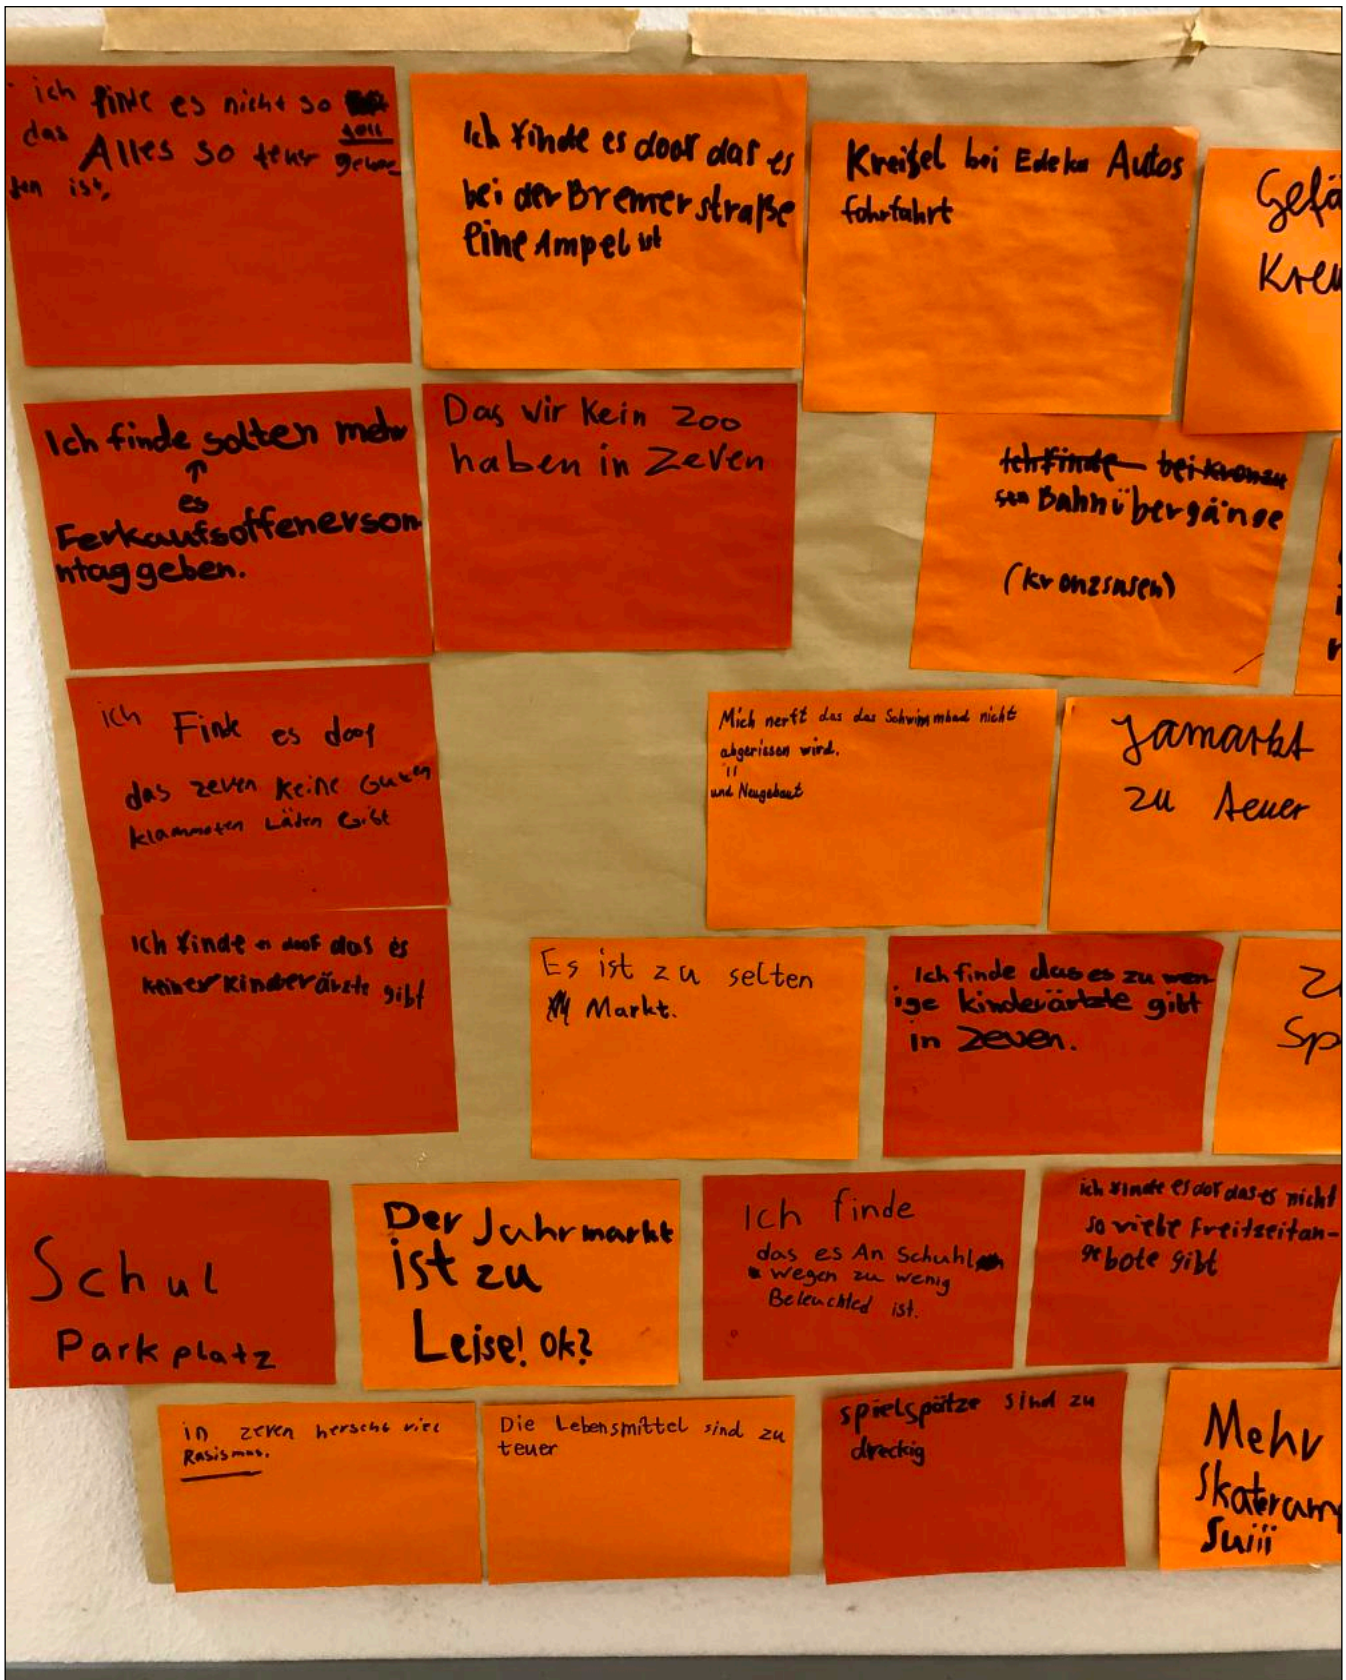 ich finde es nicht so
toll
das Alles so teuer gewor
den ist,
Ich finde es doof das es
bei der Bremerstraße
eine Ampel ist
Kreißel bei Edeka Autos
fohrfahrt
Gefä
Kreu
Ich finde solten mehr
es
Ferkaufsoffenerson
ntag geben.
Das wir Kein Zoo
haben in Zeven
Ich finde bei
Bahnübergänge
ich Finde es doof
das zeven keine Guten
klammoten Läden Gibt
Mich nerft das das Schwimmbad nicht
abgerissen wird.
und Neugebaut
Jamarkt
zu teuer
Ich finde es doof das es
keiner Kinderärzte gibt
Es ist zu selten
Markt.
Ich finde das es zu wen-
ige kinderärtzte gibt
in Zeven.
Sp
Schul
Parkplatz
Der Jahrmarkt
ist zu
Leise! ok?
Ich finde
das es An Schuhl
wegen zu wenig
Beleuchted ist.
ich finde es dof das es nicht
so viele Freitzeitan-
gebote gibt
in zeven herscht viel
Rasismus.
Die Lebensmittel sind zu
teuer
spielspätze sind zu
dreckig
Mehr
Skateram
Suiii